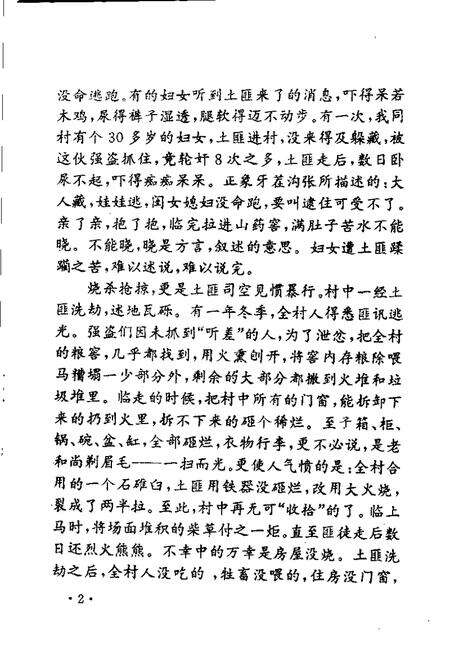 没命逃跑。有的妇女听到土匪来了的消息，吓得呆若
木鸡，尿得裤子湿透，腿软得迈不动步。有一次，我同
村有个30多岁的妇女，土匪进村，没来得及躲藏，被
这伙强盗抓住，竟轮奸8次之多，土匪走后，数日卧
尿不起，吓得痴痴呆呆。正象牙茬沟张所描述的：大
人藏，娃娃逃，闺女媳妇没命跑，要叫逮住可受不了。
亲了亲，抱了抱，临完拉进山药窖，满肚子苦水不能
晓。不能晓，晓是方言，叙述的意思。妇女遭土匪蹂
蹦之苦，难以述说，难以说完。
烧杀抢掠，更是土匪司空见惯暴行。村中一经土
匪洗劫，述地瓦砾。有一年冬季，全村人得悉匪讯逃
光。强盗们因未抓到“听差”的人，为了泄忿，把全村
的粮窖，几乎都找到，用火熏刨开，将窖内存粮除喂
马糟塌一少部分外，剩余的大部分都搬到火堆和垃
圾堆里。临走的时候，把村中所有的门窗，能拆卸下
来的扔到火里，拆不下来的砸个稀烂。至于箱、柜、
锅、碗、盆、缸，全部砸烂，衣物行李，更不必说，是老
和尚剃眉毛——一扫而光。更使人气愤的是：全村合
用的一个石碓臼，土匪用铁器没砸烂，改用大火烧，
裂成了两半拉。至此，村中再无可“收拾”的了。临上
马时，将场面堆积的柴草付之一炬。直至匪徒走后数
日还烈火熊熊。不幸中的万幸是房屋没烧。土匪洗
劫之后，全村人没吃的，牲畜没喂的，住房没门窗，
·2·